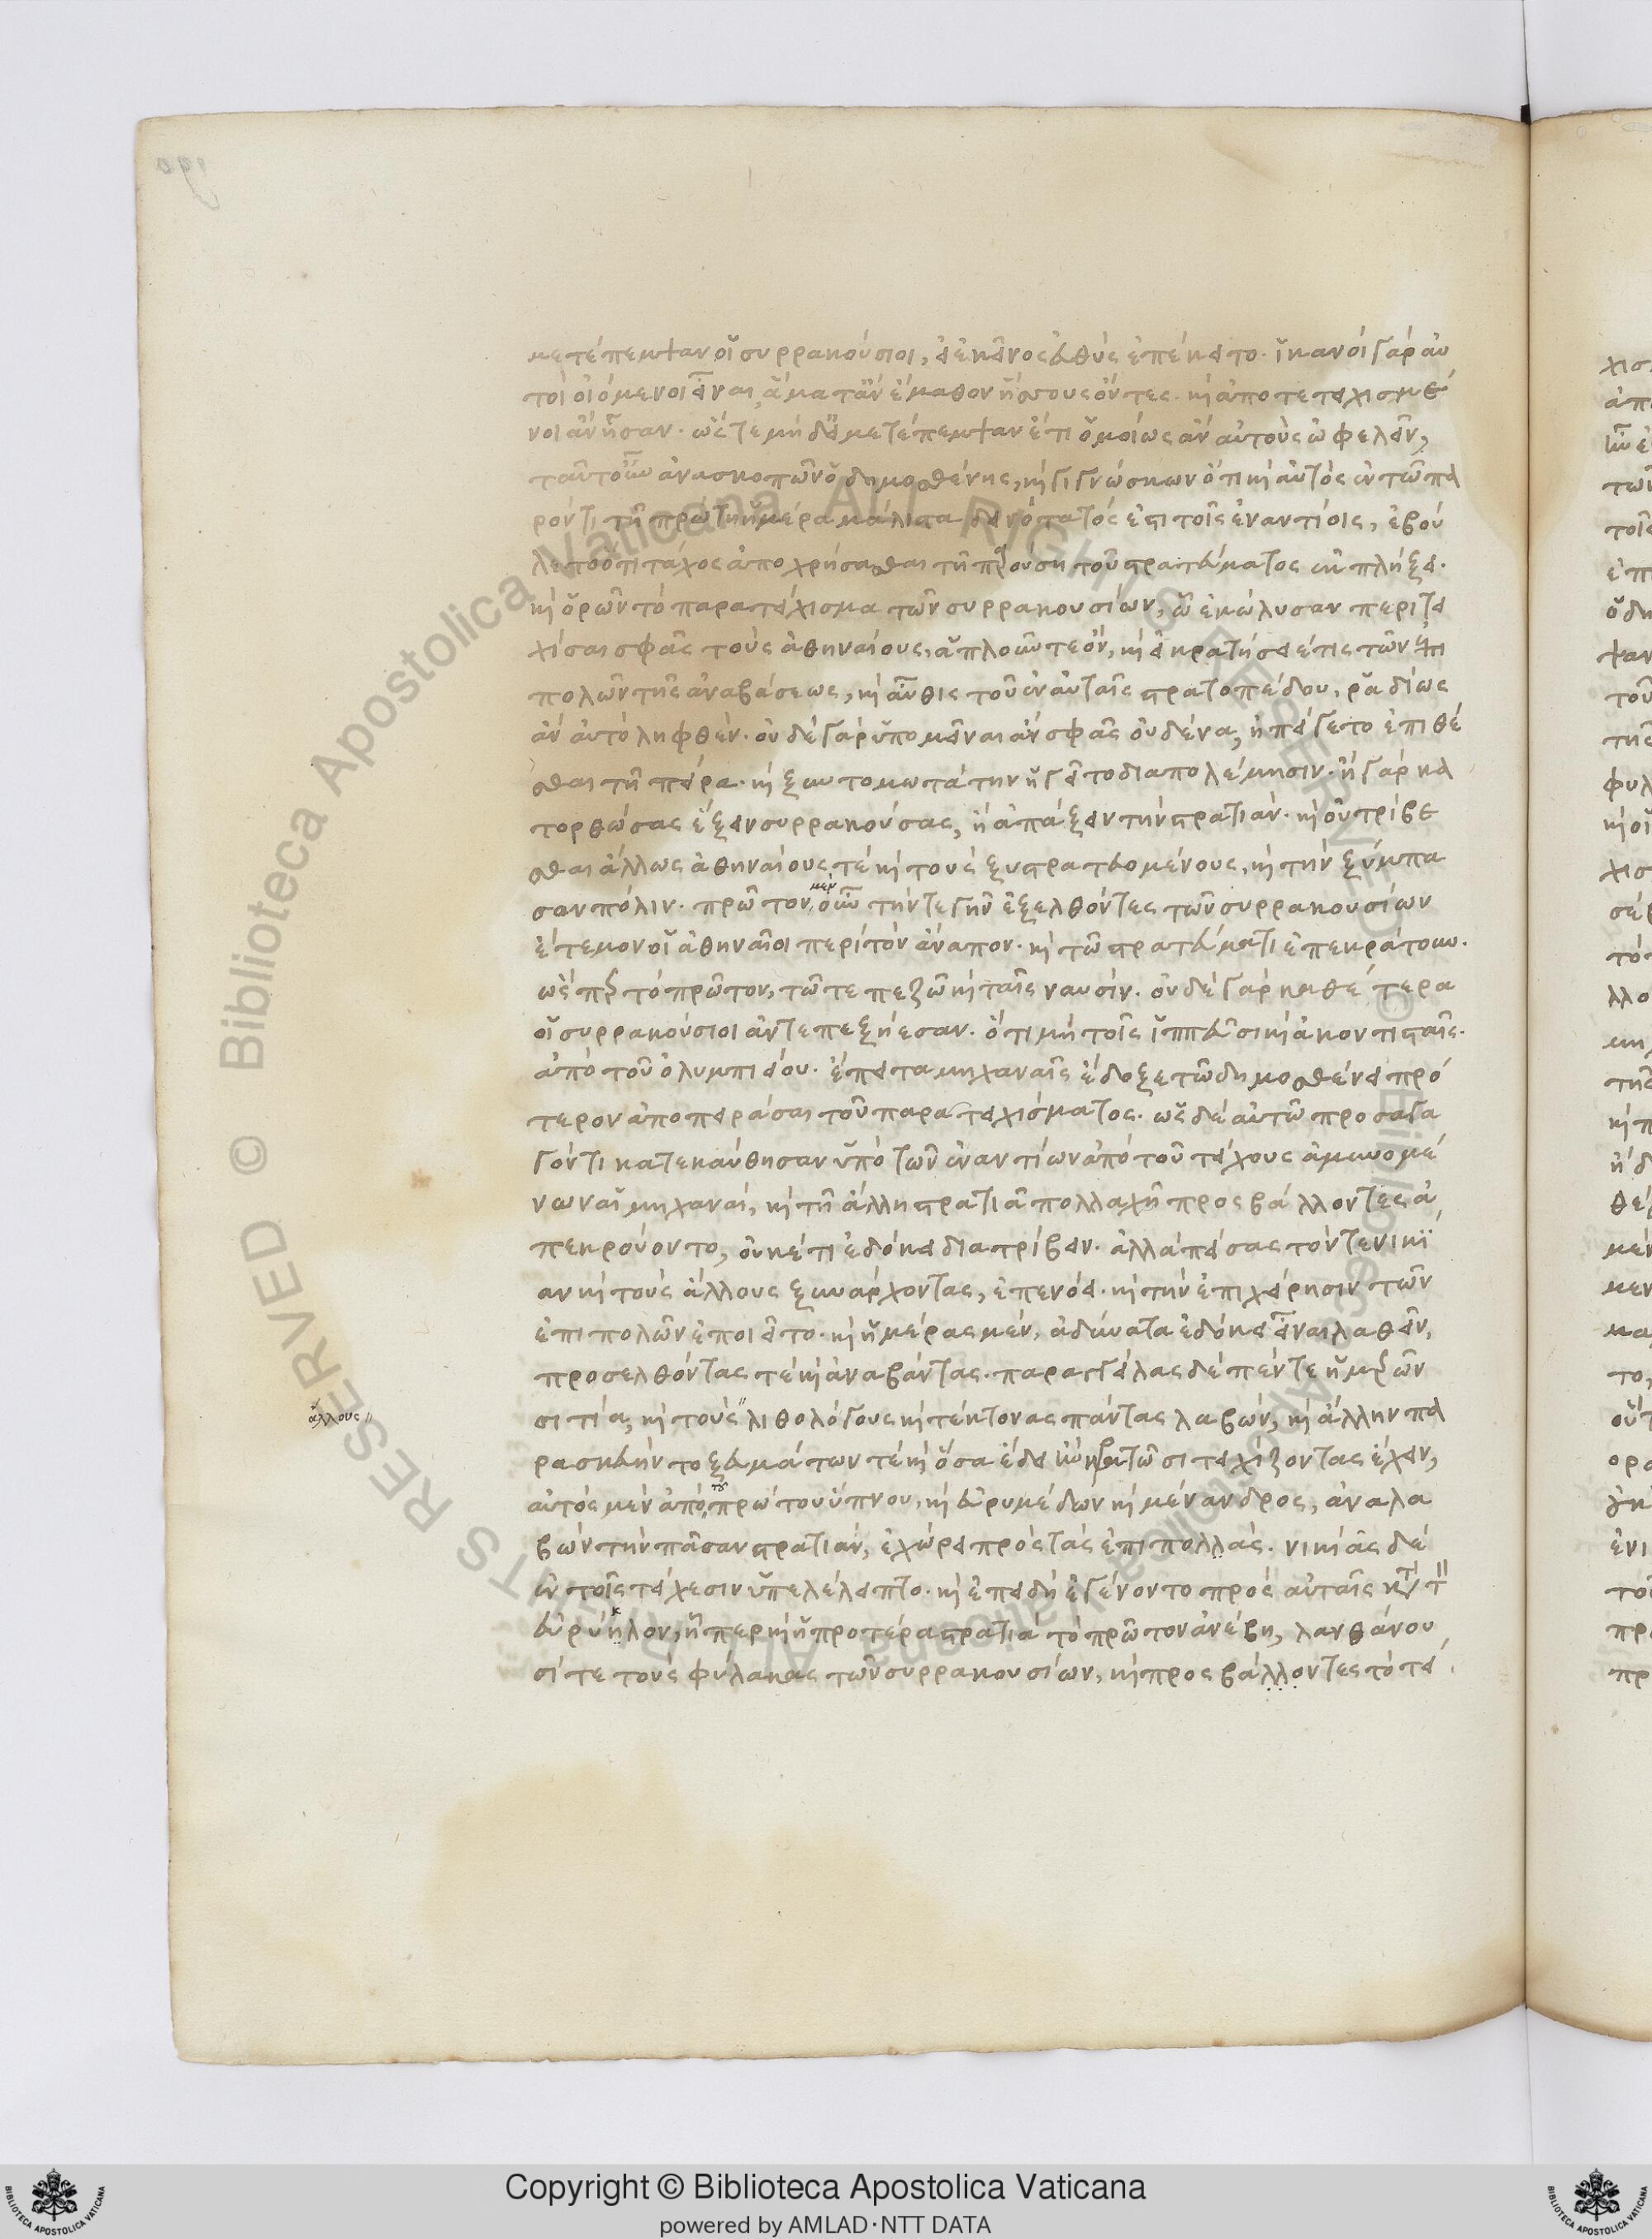 μετέπεμψαν οἱ συρρακούσιοι, εἰ ἐκεῖνος εὐθὺς ἐπέκειτο. ἱκανοὶ γὰρ αὐ
τοὶ οἰόμενοι εἶναι, ἅμα τ' ἂν ἔμαθον ἥσσους ὄντες. κ(αὶ) ἀποτετειχισμέ
νοι ἂν ἦσαν. ὥστε μηδ' εἰ μετέπεμψαν ἔτι ὁμοίως ἂν αὐτοὺς ὠφελεῖν,
ταῦτα οὖν ἀνασκοπῶν ὁ δημοσθένης, κ(αὶ) γιγνώσκων ὅτι κ(αὶ) αὐτὸς ἐν τῶ πα
ρόντι τῆ πρώτη ἡμέρα μάλιστα δεινότατός ἐστι τοῖς ἐναντίοις, ἐβού
λετο ὅτι τάχος ἀποχρήσασθαι τῆ παρούση τοῦ στρατεύματος ἐκπλήξει.
κ(αὶ) ὁρῶν τὸ παρατείχισμα τῶν συρρακουσίων, ᾧ ἐκώλυσαν περιτει
χίσαι σφᾶς τοὺς ἀθηναίους, ἁπλοῦν τε ὄν, κ(αὶ) εἰ κρατήσειέ τις τῶν ἐπι
πολῶν τῆς ἀναβάσεως, κ(αὶ) αὖθις τοῦ ἐν αὐταῖς στρατοπέδου, ῥαδίως
ἂν αὐτὸ ληφθέν. οὐδὲ γὰρ ὑπομεῖναι ἂν σφᾶς οὐδένα, ἠπείγετο ἐπιθέ
σθαι τῆ πείρα. κ(αὶ) ξυντομωτάτην ἡγεῖτο διαπολέμησιν. ἢ γὰρ κα
τορθώσας ἕξειν συρρακούσας, ἢ ἀπάξειν τὴν στρατιάν. κ(αὶ) οὐ τρίβε
σθαι ἄλλως ἀθηναίους τὲ κ(αὶ) τοὺς ξυστρατευομένους, κ(αὶ) τὴν ξύμπα
σαν πόλιν. πρῶτον μὲν οὖν τήν τε γῆν ἐξελθόντες τῶν συρρακουσίων
ἔτεμον οἱ ἀθηναῖοι περὶ τὸν ἄναπον. κ(αὶ) τῶ στρατεύματι ἐπεκράτουν.
ὥσπερ τὸ πρῶτον, τῶ τε πεζῶ κ(αὶ) ταῖς ναυσίν. οὐδὲ γὰρ καθέτερα
οἱ συρρακούσιοι ἀντεπεξήεσαν. ὅτι μὴ τοῖς ἱππεῦσι κ(αὶ) ἀκοντισταῖς.
ἀπὸ τοῦ ὀλυμπιείου. ἔπειτα μηχαναῖς ἔδοξε τῶ δημοσθένει πρό
τερον ἀποπειράσαι τοῦ παρατειχίσματος. ὡς δὲ αὐτῶ προσαγα
γόντι κατεκαύθησαν ὑπὸ τῶν ἐναντίων ἀπὸ τοῦ τείχους ἀμυνομέ
νων αἱ μηχαναί, κ(αὶ) τῆ ἄλλη στρατιᾶ πολλαχῆ προσβάλλοντες ἀ
πεκρούοντο, οὐκέτι ἐδόκει διατρίβειν. ἀλλὰ πείσας τόν τε νικί
αν κ(αὶ) τοὺς ἄλλους ξυνάρχοντας, ἐπενόει. κ(αὶ) τὴν ἐπιχείρησιν τῶν
ἐπιπολῶν ἐποιεῖτο. κ(αὶ) ἡμέρας μὲν, ἀδύνατα ἐδόκει εἶναι λαθεῖν,
προσελθόντας τὲ κ(αὶ) ἀναβάντας. παραγγείλας δὲ πέντε ἡμερῶν
σιτία, κ(αὶ) τοὺς // λιθολόγους κ(αὶ) τέκτονας πάντας λαβών, κ(αὶ) ἄλλην πα
ἄλλους //
ρασκευὴν τοξευμάτων τὲ κ(αὶ) ὅσα ἔδει ἢν κρατῶσι τειχίζοντας ἔχειν,
αὐτὸς μὲν ἀπὸ του πρώτου ὕπνου, κ(αὶ) εὐρυμέδων κ(αὶ) μένανδρος, ἀναλα
βὼν τὴν πᾶσαν στρατιάν, ἐχώρει πρὸς τὰς ἐπιπολλάς. νικίας δὲ
ἐν τοῖς τείχεσιν ὑπελέλειπτο. κ(αὶ) ἐπειδὴ ἐγένοντο πρὸς αὐταῖς κατὰ τὸν
εὐρύηλον, ἧπερ κ(αὶ) ἡ προτέρα στρατιὰ τὸ πρῶτον ἀνέβη, λανθάνου
σί τε τοὺς φύλακας τῶν συρρακουσίων, κ(αὶ) προσβάλλοντες τὸ τεί